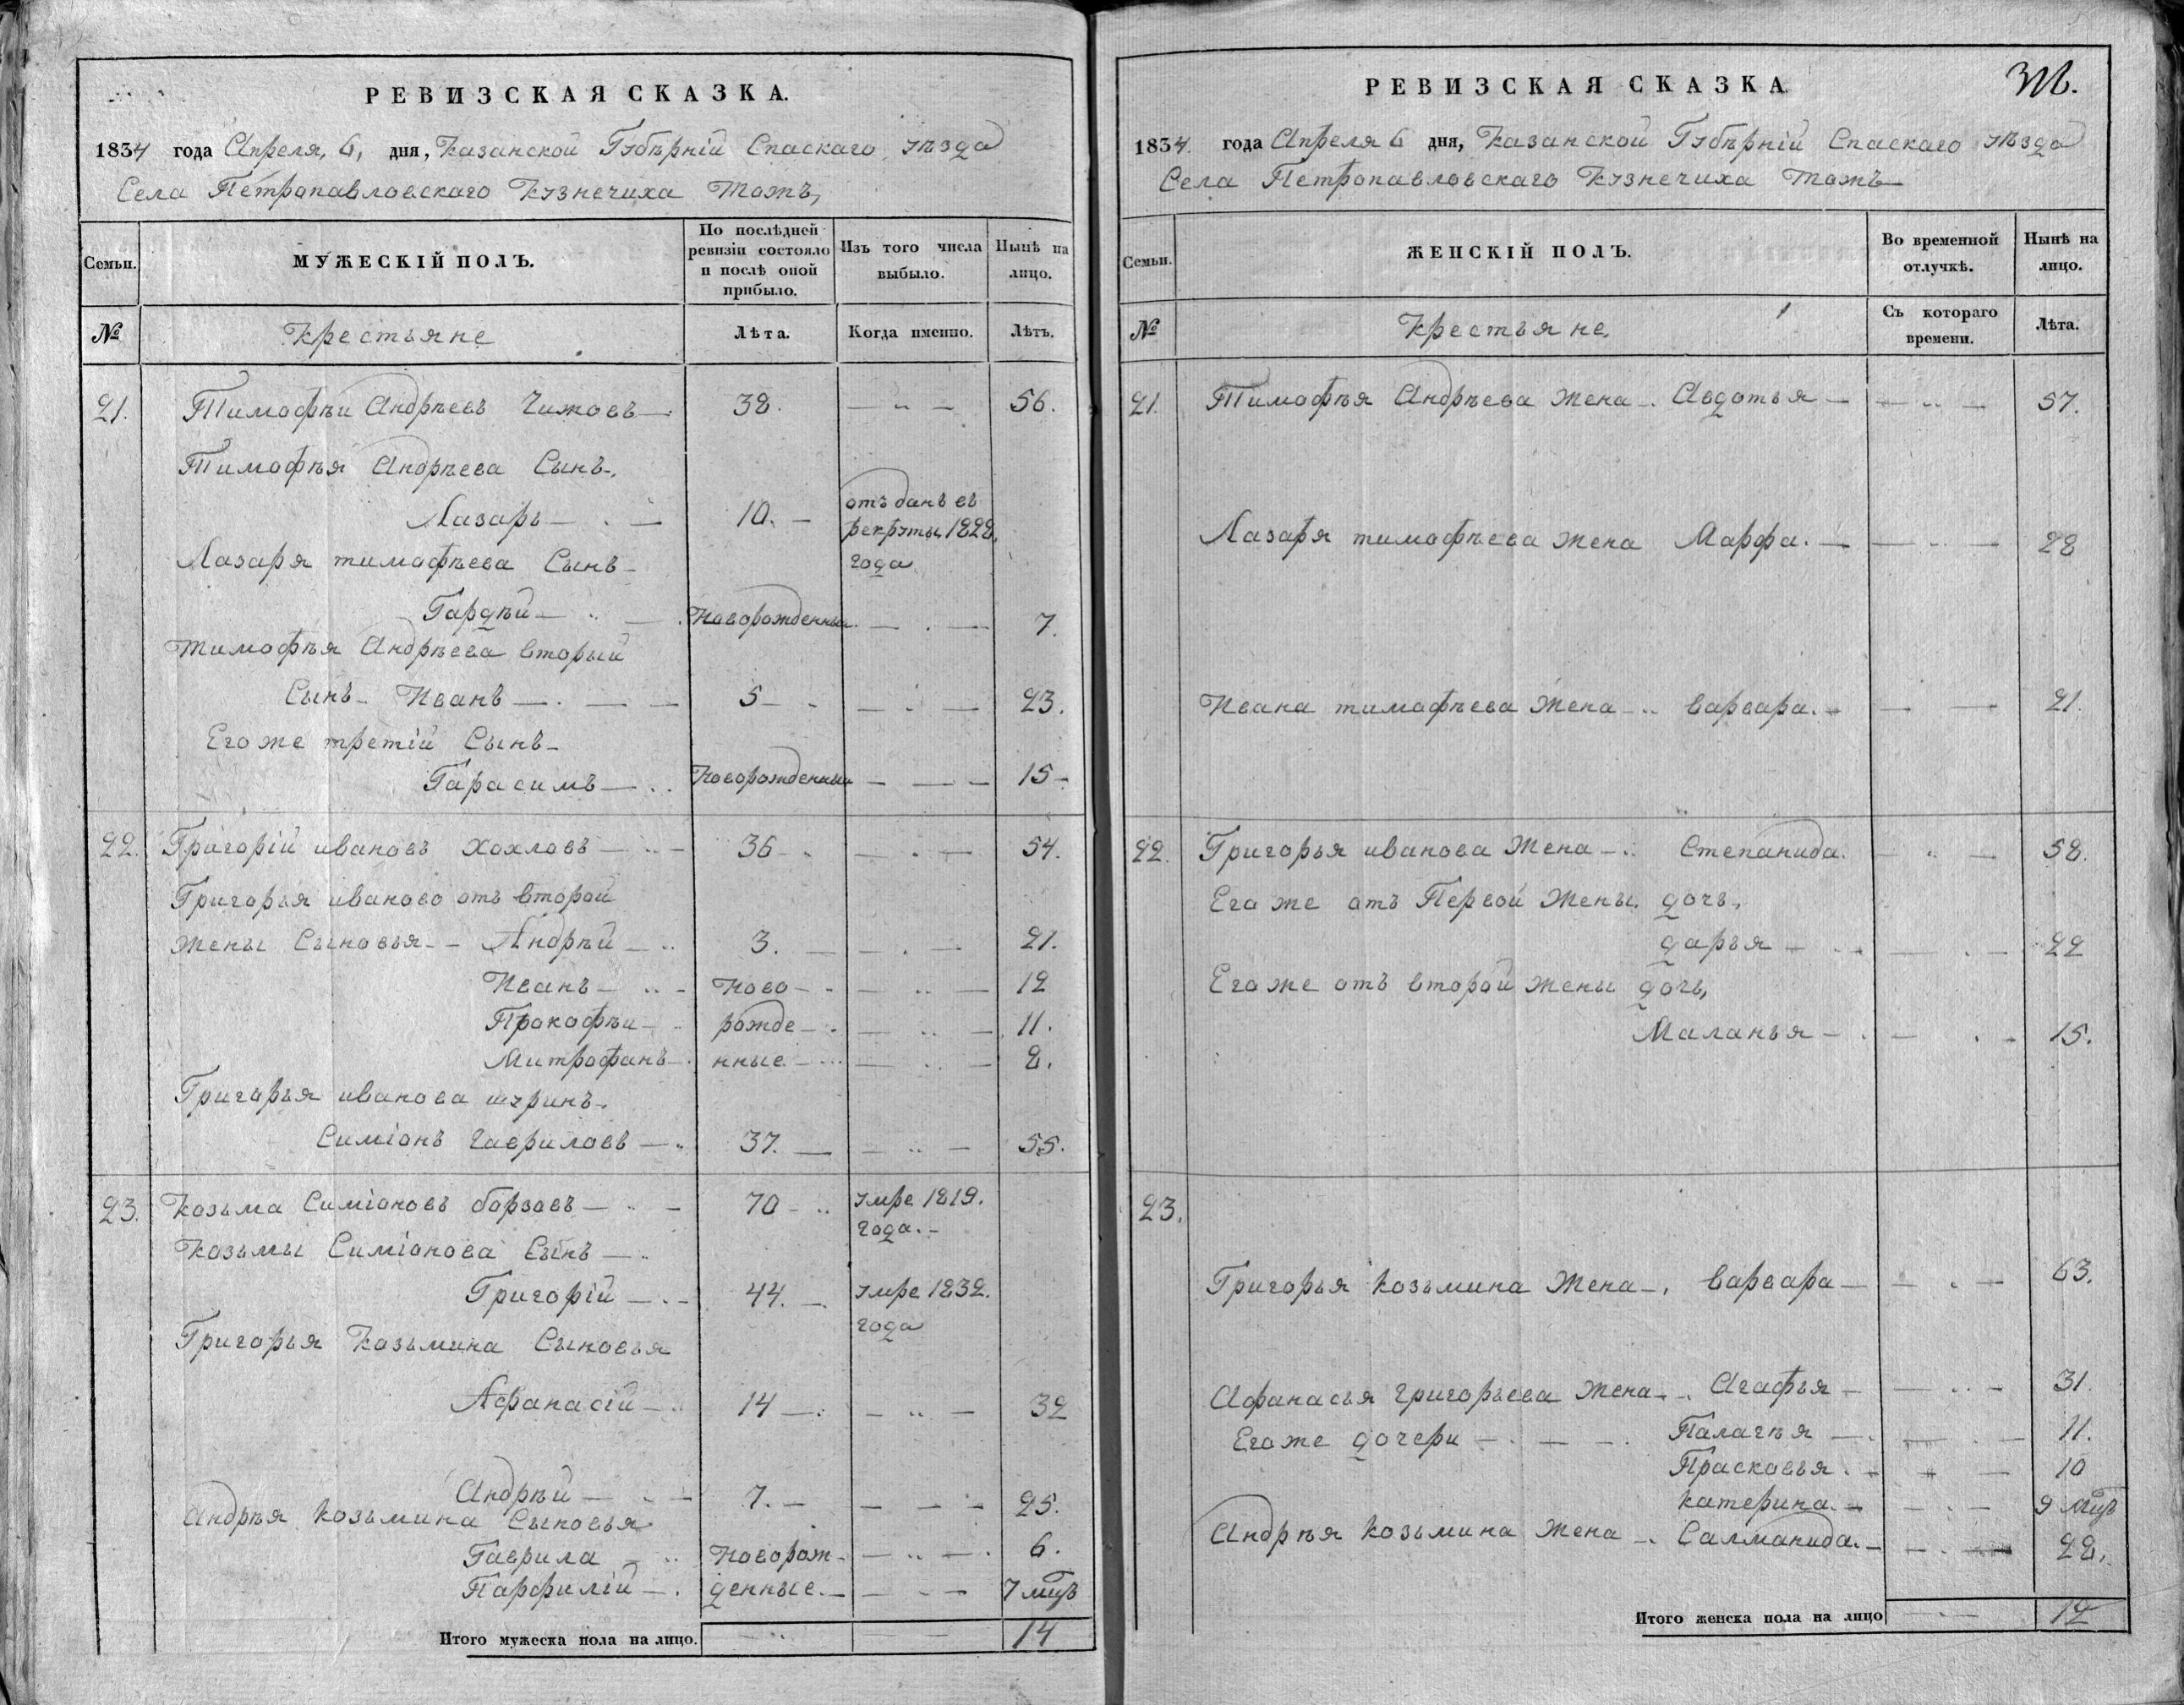 РЕВИЗСКАЯ СКАЗКА.
1834 года Апреля, 6, дня, Казанской Губѣрній Спаскаго уѣзда
Села Петропавловскаго Кузнечиха тожъ,
Семьи.
МУЖЕСКІЙ ПОЛЪ.
По послѣдней ревизіи состояло и послѣ оной прибыло.
Изъ того числа выбыло.
Нынѣ на лицо.
№
Крестьяне
Лѣта.
Когда именно.
Лѣтъ.
21. Тимофѣи Андрѣевъ Чижовъ 38. 56.
Тимофѣя Андрѣева Сынъ
Лазарь 10. отъданъ въ рекруты 1828. года
Лазаря тимофѣева Сынъ
Гардѣй Новорожденныи 7.
тимофѣя Андрѣева вторый
Сынъ Иванъ 5 23.
Егоже третій Сынъ
Гарасимъ Новорожденныи 15
22. Григорій ивановъ хохловъ 36 54.
Григорья иваново отъ второй
жены Сыновья Андрѣй 3. 21.
Иванъ Ново 12
Прокофѣи рожде 11.
Митрофанъ нные 8.
Григорья иванова шуринъ
Симіонъ гавриловъ 37. 55.
23. Козьма Симіоновъ борзовъ 70 умре 1819. года.
Козьмы Симіонова Сынъ
Григорій 44. умре 1832. года
Григорья Козьмина Сыновья
Афанасій 14 32
Андрѣй 7. 25.
Андрѣя Козьмина Сыновья
Гаврила Новорож 6.
Парфилій денные 7 мцъ
Итого мужеска пола на лицо. 14
РЕВИЗСКАЯ СКАЗКА
1834. года Апреля 6 дня, Казанской Губѣрній Спаскаго уѣзда
Села Петропавловскаго Кузнечиха тожъ
Семьи.
ЖЕНСКІЙ ПОЛЪ.
Во временной отлучкѣ.
Нынѣ на лицо.
№
Крестьяне,
Съ котораго времени.
Лѣта.
21. Тимофѣя Андрѣева жена Авдотья 57.
Лазаря тимофѣева жена Марфа. 28
Ивана тимофѣева жена варвара. 21.
22. Григорья иванова жена Степанида. 58.
Егоже отъ Первой жены дочь,
дарья 22
Егоже отъ второй жены дочь,
Маланья 15.
23.
Григорья козьмина жена варвара 63.
Афанасья григорьева жена Агафья 31.
Егоже дочери Палагѣя 11.
Прасковья 10
катерина 9 мцъ
Андрѣя козьмина жена Салманида. 28.
Итого женска пола на лицо 12